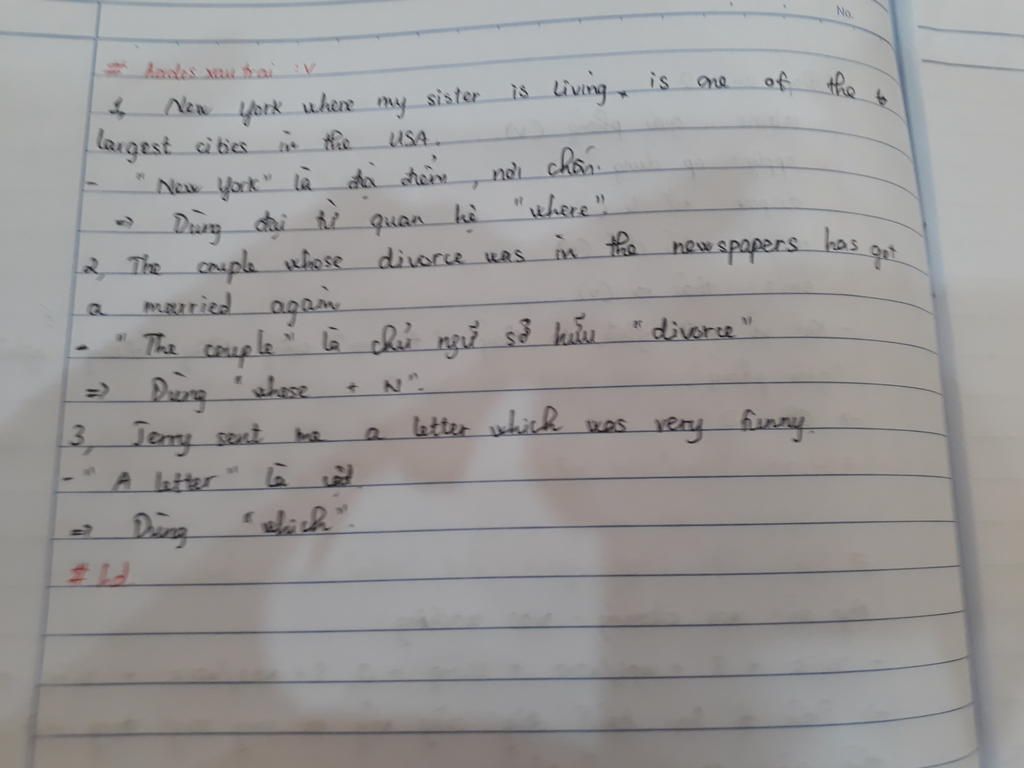 No.
# hades xau trai :v
1, New York where my sister is living, is one of the
largest cities in the USA.
- "New York" là địa điểm, nơi chốn.
=> Dùng đại từ quan hệ "where".
2, The couple whose divorce was in the newspapers has got
a married again
- "The couple" là chủ ngữ sở hữu "divorce"
=> Dùng "whose + N".
3, Jerry sent me a letter which was very funny.
- "A letter" là vật
=> Dùng "which".
# Ld